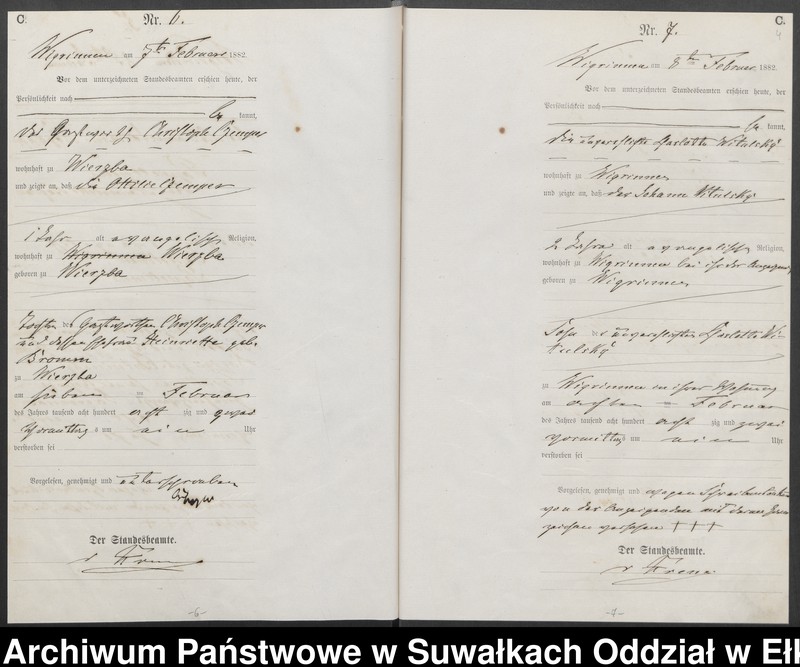 C.
Nr. 6.
Wigrinnen am 7ten Februar 1882
Vor dem unterzeichneten Standesbeamten erschien heute, der
Persönlichkeit nach
be kannt,
der Christoph Czemper
wohnhaft zu Wierzba
und zeigte an, daß die Ottilie Czemper
1 Jahr alt evangelisch Religion,
wohnhaft zu Wigrinnen Wierzba
geboren zu Wierzba
Tochter des Gastwirthen Christoph Czemper
und dessen Ehefrau Heinriette geb.
zu Wierzba
am sieben ten Februar
des Jahres tausend acht hundert acht zig und zwei
Vormittag s um ein Uhr
verstorben sei
Vorgelesen, genehmigt und unterschrieben
Der Standesbeamte.
-6-
C.
4
Nr. 7.
Wigrinnen am 8ten Februar 1882.
Vor dem unterzeichneten Standesbeamten erschien heute, der
Persönlichkeit nach
be kannt,
die unverehelichte Charlotte Witulsky
wohnhaft zu Wigrinnen
und zeigte an, daß der Johann Witulsky
2 Jahre alt evangelisch Religion,
wohnhaft zu Wigrinnen bei
geboren zu Wigrinnen
Sohn der unverehelichten Charlotte Wi-
tulsky
zu Wigrinnen in ihrer Wohnung
am achten Februar
des Jahres tausend acht hundert acht zig und zwei
vormittag s um ein Uhr
verstorben sei
Vorgelesen, genehmigt und wegen
von der Anzeigenden mit deren Hand-
zeichen versehen + + +
Der Standesbeamte.
-7-
Archiwum Państwowe w Suwałkach Oddział w Eł